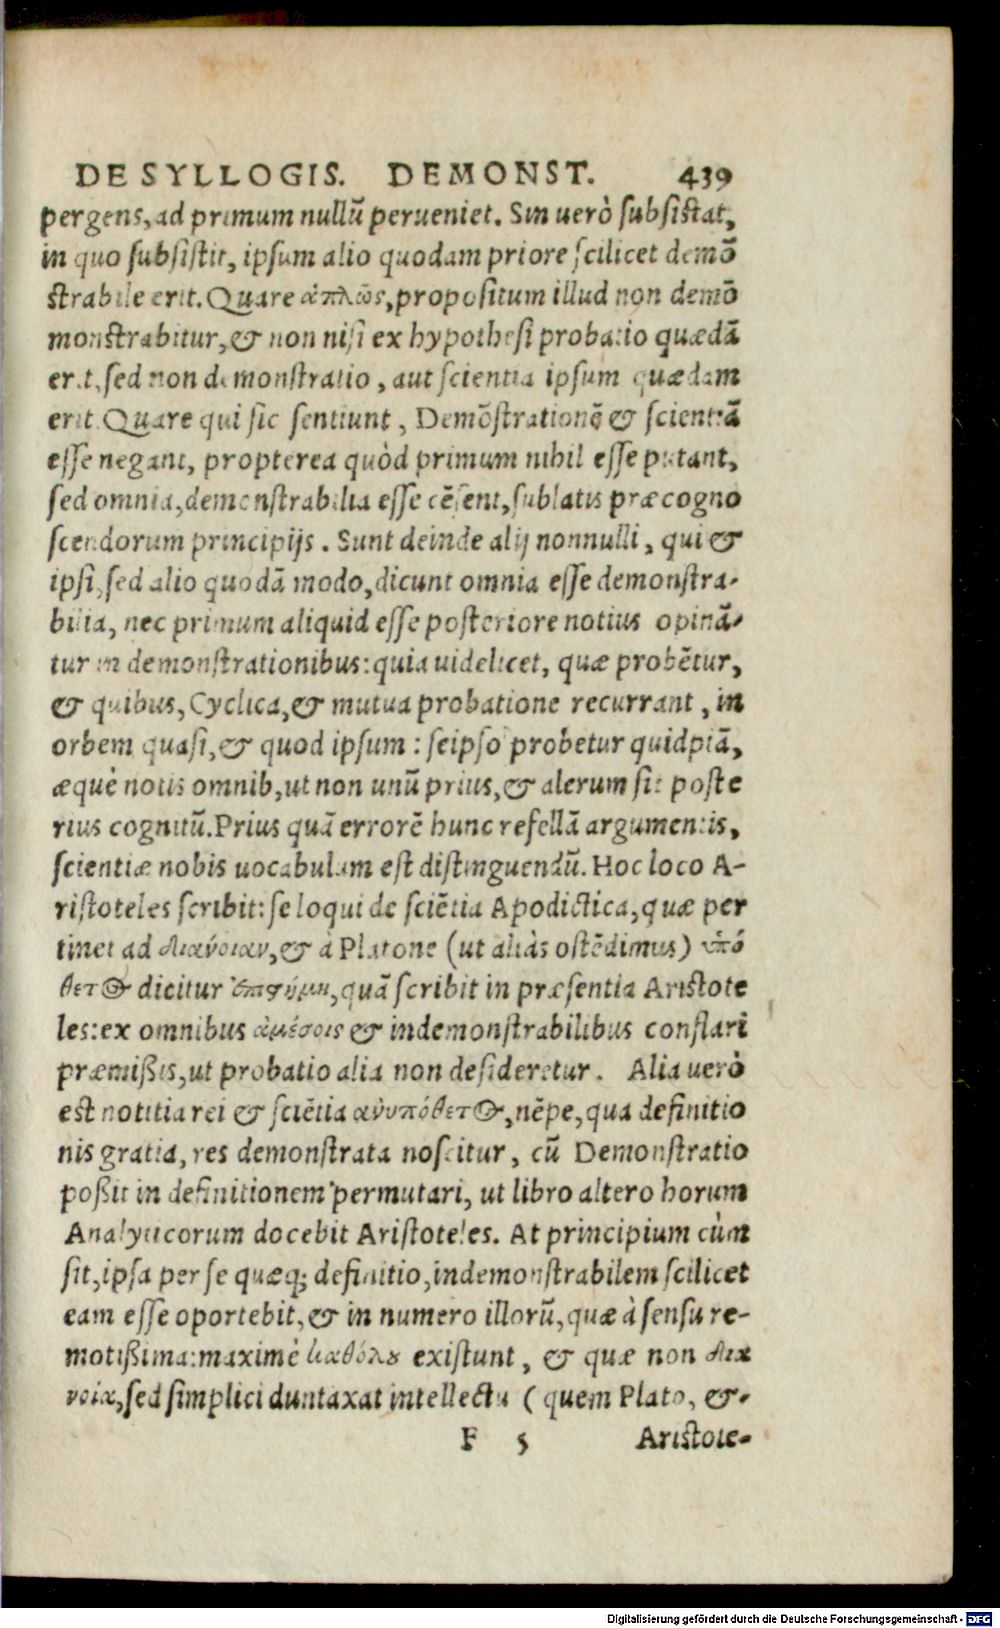 DE SYLLOGIS. DEMONST. 439
pergens, ad primum nullũ perueniet. Sin uerò subsistat,
in quo subsistit, ipsum alio quodam priore scilicet demõ
strabile erit. Quare ἁπλῶς, propositum illud non demõ
monstrabitur, & non nisi ex hypothesi probatio quædã
erit, sed non demonstratio, aut scientia ipsum quædam
erit. Quare qui sic sentiunt, Demõstrationẽ & scientiã
esse negant, propterea quòd primum nihil esse putant,
sed omnia, demonstrabilia esse cẽsent, sublatis præcogno
scendorum principijs. Sunt deinde alij nonnulli, qui &
ipsi, sed alio quodã modo, dicunt omnia esse demonstra-
bilia, nec primum aliquid esse posteriore notius opinã-
tur in demonstrationibus: quia uidelicet, quæ probẽtur,
& quibus, Cyclica, & mutua probatione recurrant, in
orbem quasi, & quod ipsum: seipso probetur quidpiã,
æquè notis omnib, ut non unũ prius, & alerum sit poste
rius cognitũ. Prius quã errorẽ hunc refellã argumentis,
scientiæ nobis uocabulum est distinguendũ. Hoc loco A-
ristoteles scribit: se loqui de sciẽtia Apodictica, quæ per
tinet ad διανόιαν, & à Platone (ut aliàs ostẽdimus) ὑπό
θετος dicitur ἐπιστήμη, quã scribit in præsentia Aristote
les: ex omnibus ἀμέσοις & indemonstrabilibus constari
præmißis, ut probatio alia non desideretur. Alia uerò
est notitia rei & sciẽtia ανυπόθετος, nẽpe, qua definitio
nis gratia, res demonstrata noscitur, cũ Demonstratio
poßit in definitionem permutari, ut libro altero horum
Analyticorum docebit Aristoteles. At principium cùm
sit, ipsa per se quæq; definitio, indemonstrabilem scilicet
eam esse oportebit, & in numero illorũ, quæ à sensu re-
motißima: maximè καθόλου existunt, & quæ non δια
νοία, sed simplici duntaxat intellectu (quem Plato, &
F 5 Aristote-
Digitalisierung gefördert durch die Deutsche Forschungsgemeinschaft - DFG